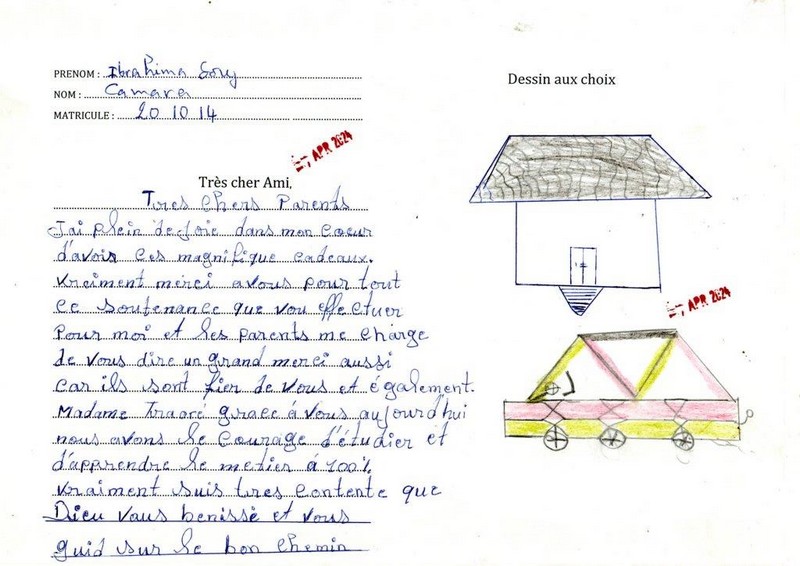 PRENOM : Ibrahima Sory
NOM : Camara
MATRICULE : 20 10 14
Dessin aux choix
APR 2024
Très cher Ami,
Tres Chers Parents
J'ai plein de Joie dans mon Coeur
d'avoir Ces magnifique cadeaux.
Vraiment merci a vous pour tout
Ce soutenance que vou effectuer
Pour moi et les parents me charge
de vous dire un grand merci aussi
Car ils sont fier de vous et également.
Madame Traoré grace a vous aujourd'hui
nous avons le Courage d'étudier et
d'apprendre le metier à 100%
Vraiment suis tres contente que
Dieu vous benissè et vous
guid sur le bon chemin
APR 2024